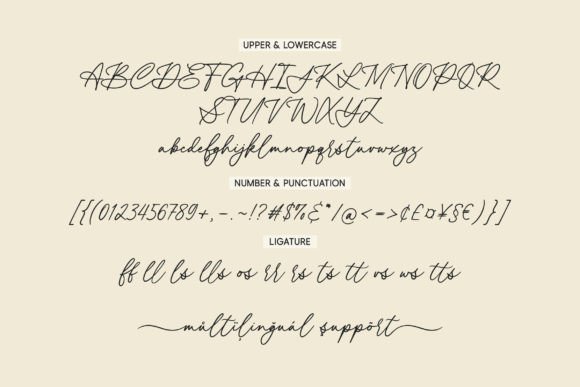 UPPER & LOWERCASE
ABCDEFGHIJKLMNOPQR
STUVWXYZ
abcdefghijklmnopqrstuvwxyz
NUMBER & PUNCTUATION
[{(0123456789+,-.~!?#$%&*/|@<=>¢£¤¥§€)}]
LIGATURE
ff ll ls lls os rr rs ts tt vs ws tts
múltïļinğuál şuppōrt